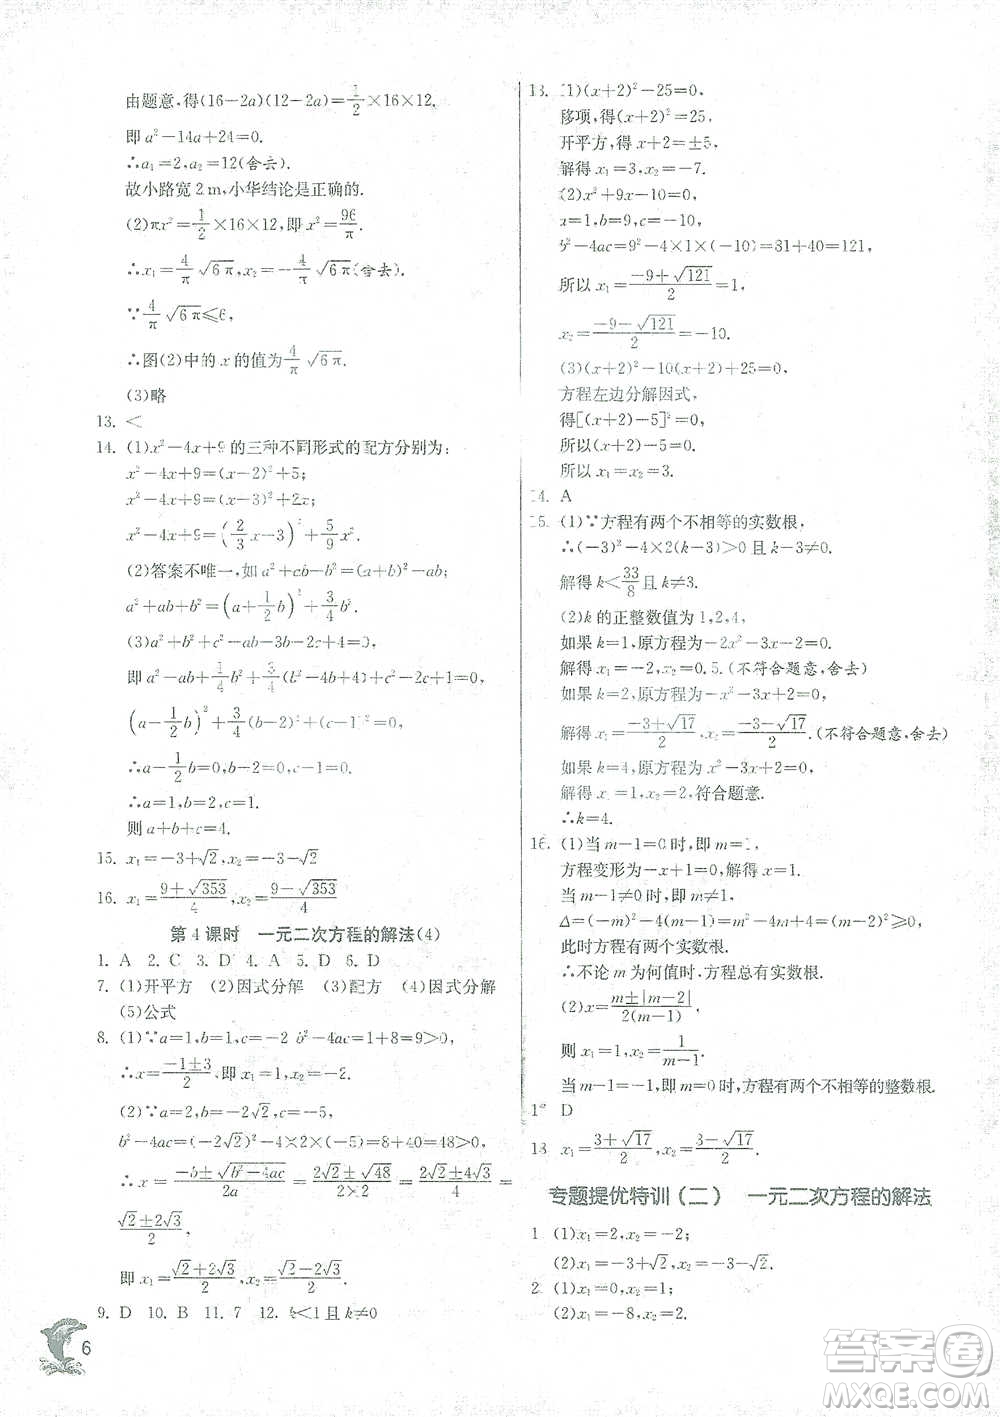 由题意,得(16-2a)(12-2a)=1/2×16×12.
即 a²-14a+24=0.
∴a₁=2,a₂=12(舍去).
故小路宽 2 m,小华结论是正确的.
(2)πx²=1/2×16×12,即 x²=96/π.
∴x₁=4/π √6π,x₂=-4/π √6π(舍去).
∵4/π √6π≤6,
∴图(2)中的 x 的值为4/π √6π.
(3)略
13. <
14. (1)x²-4x+9 的三种不同形式的配方分别为:
x²-4x+9=(x-2)²+5;
x²-4x+9=(x-3)²+2x;
x²-4x+9=(2/3 x-3)²+5/9 x².
(2)答案不唯一,如 a²+ab+b²=(a+b)²-ab;
a²+ab+b²=(a+1/2 b)²+3/4 b².
(3)a²+b²+c²-ab-3b-2c+4=0.
即 a²-ab+1/4 b²+3/4(b²-4b+4)+c²-2c+1=0,
(a-1/2 b)²+3/4(b-2)²+(c-1)²=0,
∴a-1/2 b=0,b-2=0,c-1=0.
∴a=1,b=2,c=1.
则 a+b+c=4.
15. x₁=-3+√2,x₂=-3-√2
16. x₁=(9+√353)/4,x₂=(9-√353)/4
第 4 课时 一元二次方程的解法(4)
1. A 2. C 3. D 4. A 5. D 6. D
7. (1)开平方 (2)因式分解 (3)配方 (4)因式分解
(5)公式
8. (1)∵a=1,b=1,c=-2 b²-4ac=1+8=9>0,
∴x=(-1±3)/2,即 x₁=1,x₂=-2.
(2)∵a=2,b=-2√2,c=-5,
b²-4ac=(-2√2)²-4×2×(-5)=8+40=48>0,
∴x=(-b±√(b²-4ac))/2a=(2√2±√48)/(2×2)=(2√2±4√3)/4=
(√2±2√3)/2,
即 x₁=(√2+2√3)/2,x₂=(√2-2√3)/2.
9. D 10. B 11. 7 12. k<1且 k≠0
6
13. (1)(x+2)²-25=0,
移项,得(x+2)²=25,
开平方,得 x+2=±5,
解得 x₁=3,x₂=-7.
(2)x²+9x-10=0,
a=1,b=9,c=-10,
b²-4ac=9²-4×1×(-10)=81+40=121,
所以 x₁=(-9+√121)/2=1,
x₂=(-9-√121)/2=-10.
(3)(x+2)²-10(x+2)+25=0,
方程左边分解因式,
得[(x+2)-5]²=0,
所以(x-3)²=0,
所以 x₁=x₂=3.
14. A
15. (1)∵方程有两个不相等的实数根,
∴(-3)²-4×2(k-3)>0 且 k-3≠0.
解得 k<33/8且 k≠3.
(2)k 的正整数值为 1,2,4,
如果 k=1,原方程为-2x²-3x-2=0.
解得 x₁=-2,x₂=0.5.(不符合题意,舍去)
如果 k=2,原方程为-x²-3x+2=0,
解得 x₁=(-3+√17)/2,x₂=(-3-√17)/2.(不符合题意,舍去)
如果 k=4,原方程为 x²-3x+2=0,
解得 x₁=1,x₂=2,符合题意.
∴k=4.
16. (1)当 m-1=0 时,即 m=1,
方程变形为-x+1=0,
当 m-1≠0 时,即 m≠1,
Δ=m²-4(m-1)=m²-4m+4=(m-2)²≥0,
此时方程有两个实数根.
∴不论 m 为何值时,方程总有实数根.
(2)x=(m±|m-2|)/(2(m-1)),
则 x₁=1,x₂=1/(m-1),
当 m-1=-1,即 m=0 时,方程有两个不相等的整数根.
17. D
18. x₁=(3+√17)/2,x₂=(3-√17)/2
专题提优特训(二) 一元二次方程的解法
1 (1)x₁=2,x₂=-2;
(2)x₁=-3+√2,x₂=-3-√2.
2. (1)x₁=3,x₂=1;
(2)x₁=-8,x₂=2.
答案圈
MXQE.COM